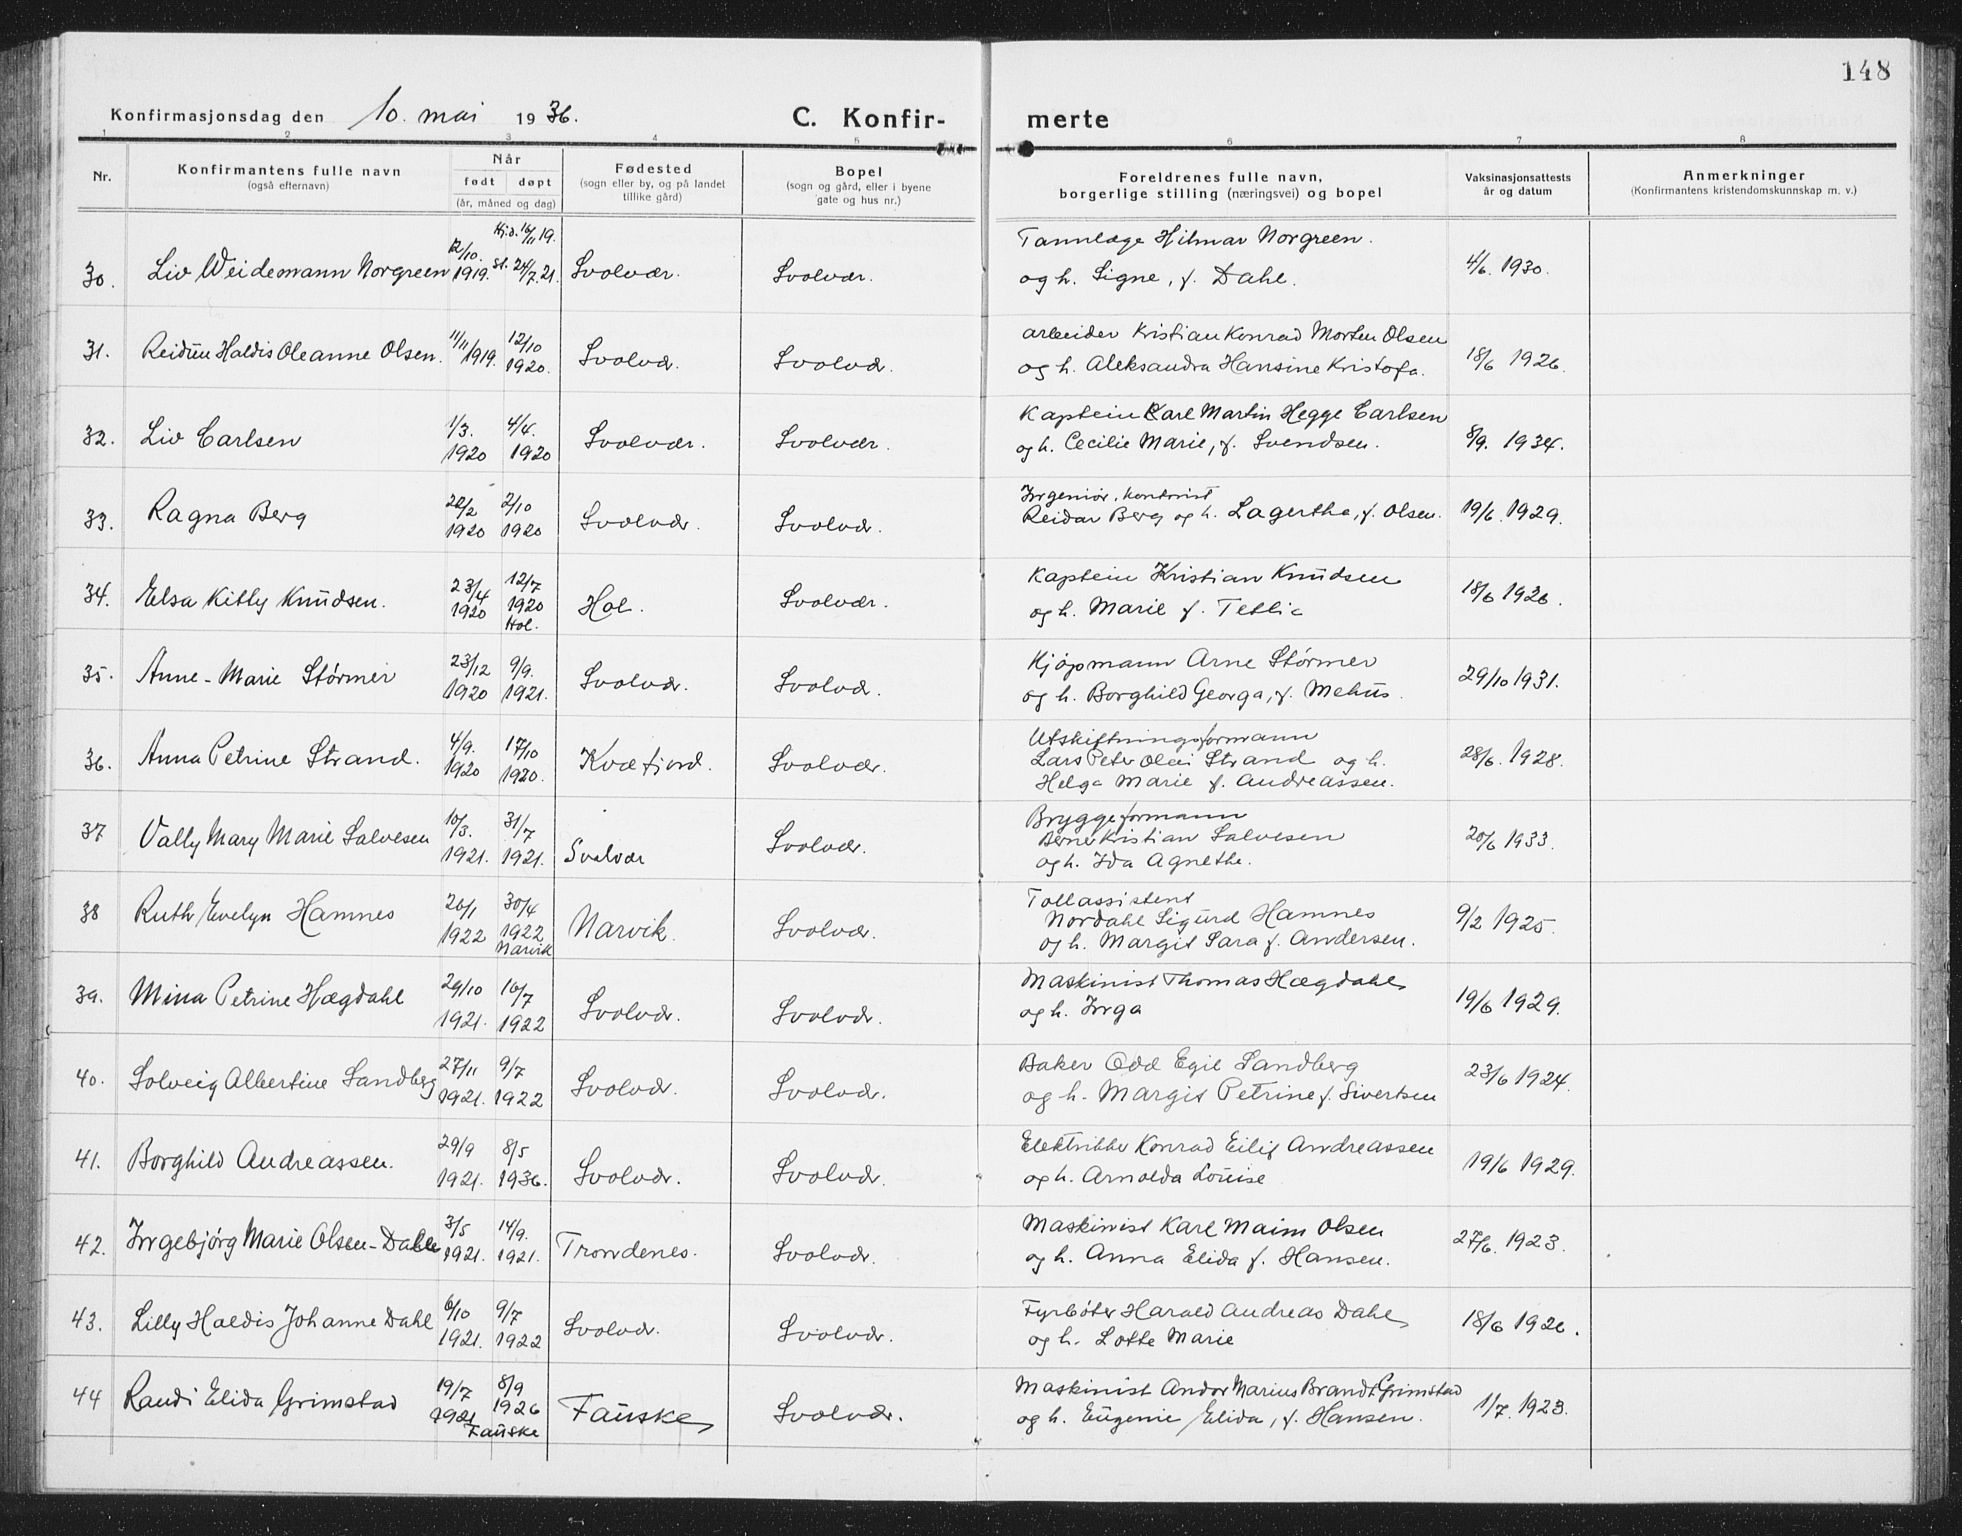 148
Konfirmasjonsdag den 10. mai 1936.
C. Konfir-
merte
1 2 3 4 5 6 7 8
Nr.
Konfirmantens fulle navn
(også efternavn)
Når
født døpt
(år, måned og dag)
Fødested
(sogn eller by, og på landet
tillike gård)
Bopel
(sogn og gård, eller i byene
gate og hus nr.)
Foreldrenes fulle navn,
borgerlige stilling (næringsvei) og bopel
Vaksinasjonsattests
år og datum
Anmerkninger
(Konfirmantens kristendomskunnskap m. v.)
Hj.d. 16/11 19.
12/10.
30. Liv Weidemann Norgreen 1919. st. 24/7. 21. Svolvær. Svolvær.
Tannlæge Hilmar Norgreen.
og h. Signe, f. Dahl. 4/6. 1930.
31. Reidun Haldis Oleanne Olsen. 11/11 1919. 12/10 1920. Svolvær. Svolvær.
arbeider Kristian Konrad Morten Olsen
og h. Aleksandra Hansine Kristofa. 18/6 1926.
32. Liv Carlsen 1/3. 1920 4/4. 1920 Svolvær. Svolvær.
Kaptein Karl Martin Hegge Carlsen
og h. Cecilie Marie, f. Svendsen. 8/9. 1934.
33. Ragna Berg 22/2 1920 2/10 1920 Svolvær. Svolvær.
Ingeniør, kontorist
Reidar Berg og h. Lagertha, f. Olsen. 19/6. 1929.
34. Elsa Kitty Knudsen. 23/4 1920 12/7 1920 Hol. Hol. Svolvær.
Kaptein Kristian Knudsen
og h. Marie f. Tetlie 18/6 1926.
35. Anne-Marie Størmer 23/12 1920 9/9. 1921. Svolvær. Svolvær.
Kjøpmann Arne Størmer
og h. Borghild Georga, f. Mehus. 29/10 1931.
36. Anna Petrine Strand. 4/9. 1920 17/10 1920. Kvæfjord. Svolvær.
Utskiftningsformann
Lars Peter Olai Strand og h.
Helga Marie f. Andreassen. 28/6. 1928.
37 Vally Mary Marie Salvesen 10/3. 1921. 31/7 1921. Svolvær Svolvær.
Bryggeformann
Berner Kristian Salvesen
og h. Ida Agnethe. 20/6 1933.
38 Ruth Evelyn Hamnes 26/1 1922 30/4 1922 Narvik Narvik. Svolvær.
Tollassistent
Nordahl Sigurd Hamnes
og h. Margit Sara f. Andersen. 9/2 1925.
39. Mina Petrine Hægdahl 29/10 1921. 16/7 1922 Svolvær. Svolvær.
Maskinist Thomas Hægdahl
og h. Inga 19/6 1929.
40. Solveig Albertine Sandberg 27/11 1921. 9/7 1922 Svolvær. Svolvær.
Baker Odd Egil Sandberg
og h. Margit Petrine f. Sivertsen 23/6 1924.
41. Borghild Andreassen. 29/9 1921. 8/5 1936. Svolvær. Svolvær.
Elektriker Konrad Eilif Andreassen
og h. Arnolda Louise 19/6 1929.
42. Ingebjørg Marie Olsen-Dahle 3/5 1921. 14/9. 1921. Trondenes. Svolvær.
Maskinist Karl Maim Olsen
og h. Anna Elida f. Hansen. 27/6. 1923.
43. Lilly Haldis Johanne Dahl 6/10 1921. 9/7 1922 Svolvær. Svolvær.
Fyrbøter Harald Andreas Dahl
og h. Lotte Marie 18/6 1926.
44 Randi Elida Grimstad 19/7 1921 8/9 1926 Fauske Fauske Svolvær.
Maskinist Andor Marius Brandt Grimstad
og h. Eugenie Elida, f. Hansen. 1/7. 1923.